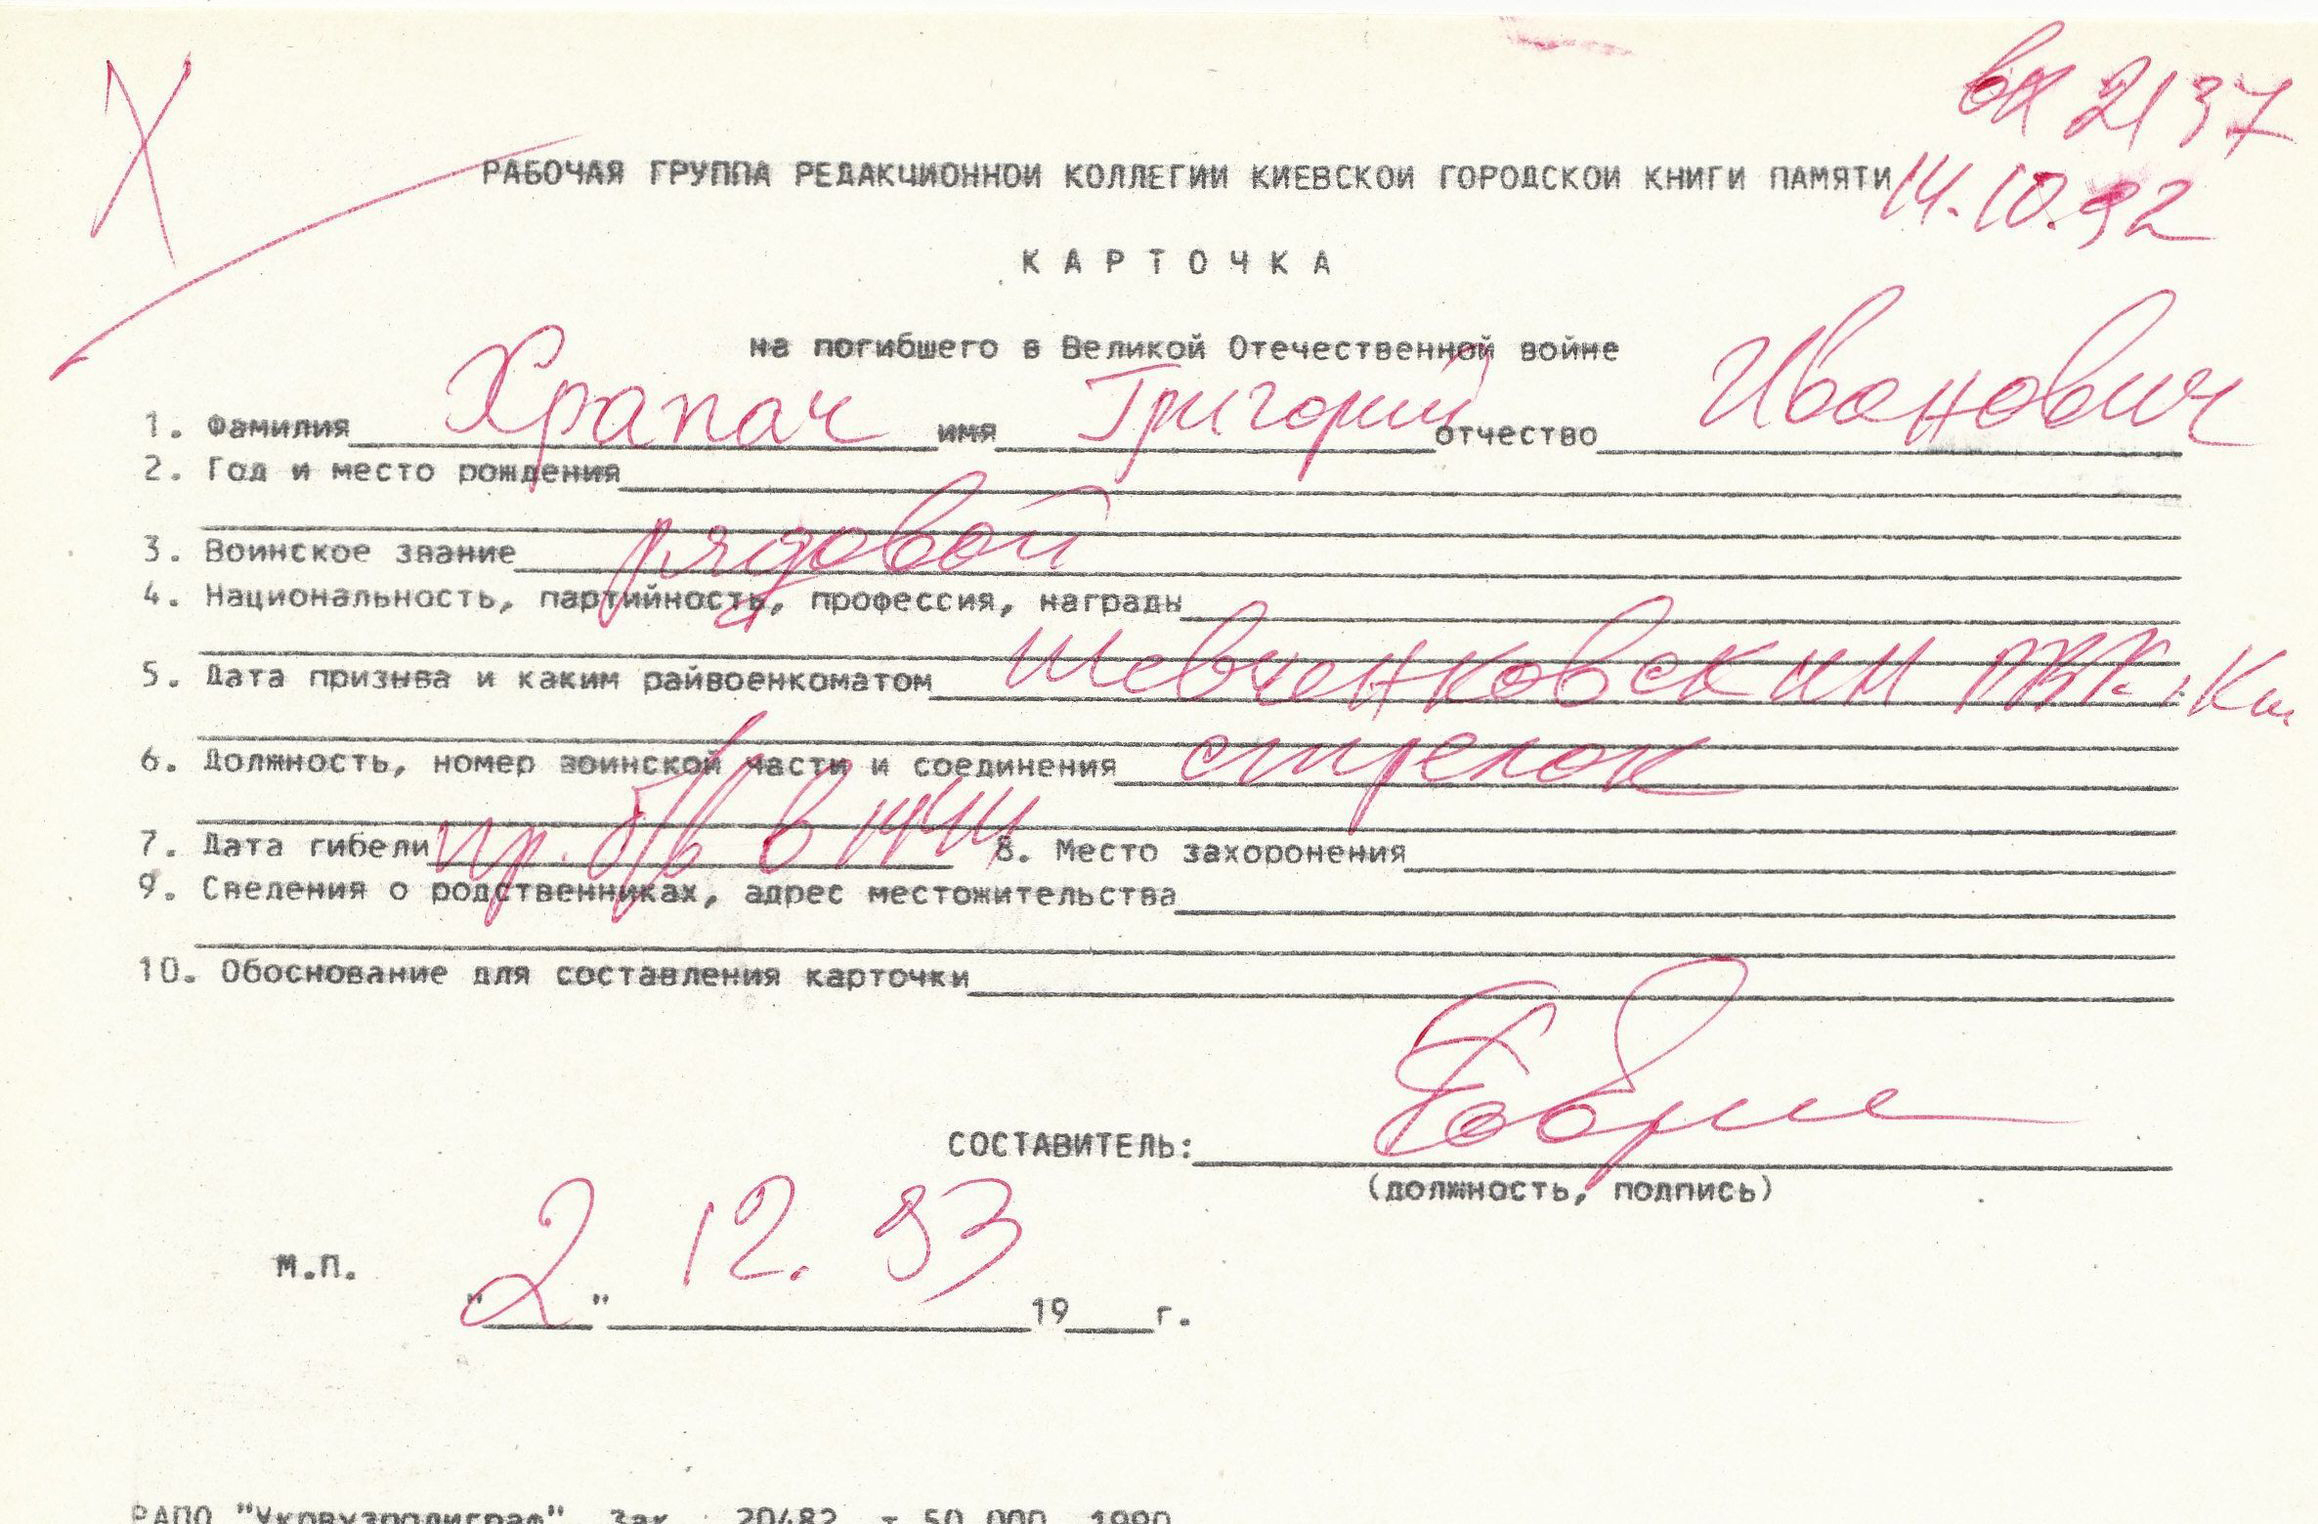 Х
вх 2137
РАБОЧАЯ ГРУППА РЕДАКЦИОННОЙ КОЛЛЕГИИ КИЕВСКОЙ ГОРОДСКОЙ КНИГИ ПАМЯТИ 14.10.92
КАРТОЧКА
на погибшего в Великой Отечественной войне
1. Фамилия Храпач имя Григорий отчество Иванович
2. Год и место рождения
3. Воинское звание рядовой
4. Национальность, партийность, профессия, награды
5. Дата призыва и каким райвоенкоматом Шевченковским РВК г.
6. Должность, номер воинской части и соединения стрелок
7. Дата гибели пр. б/в в 1944 8. Место захоронения
9. Сведения о родственниках, адрес местожительства
10. Обоснование для составления карточки
СОСТАВИТЕЛЬ:
(должность, подпись)
М.П.
"2" 12. 93 19 г.
РАПО "Укрвузполиграф". Зак. 20482 т 50 000 1990